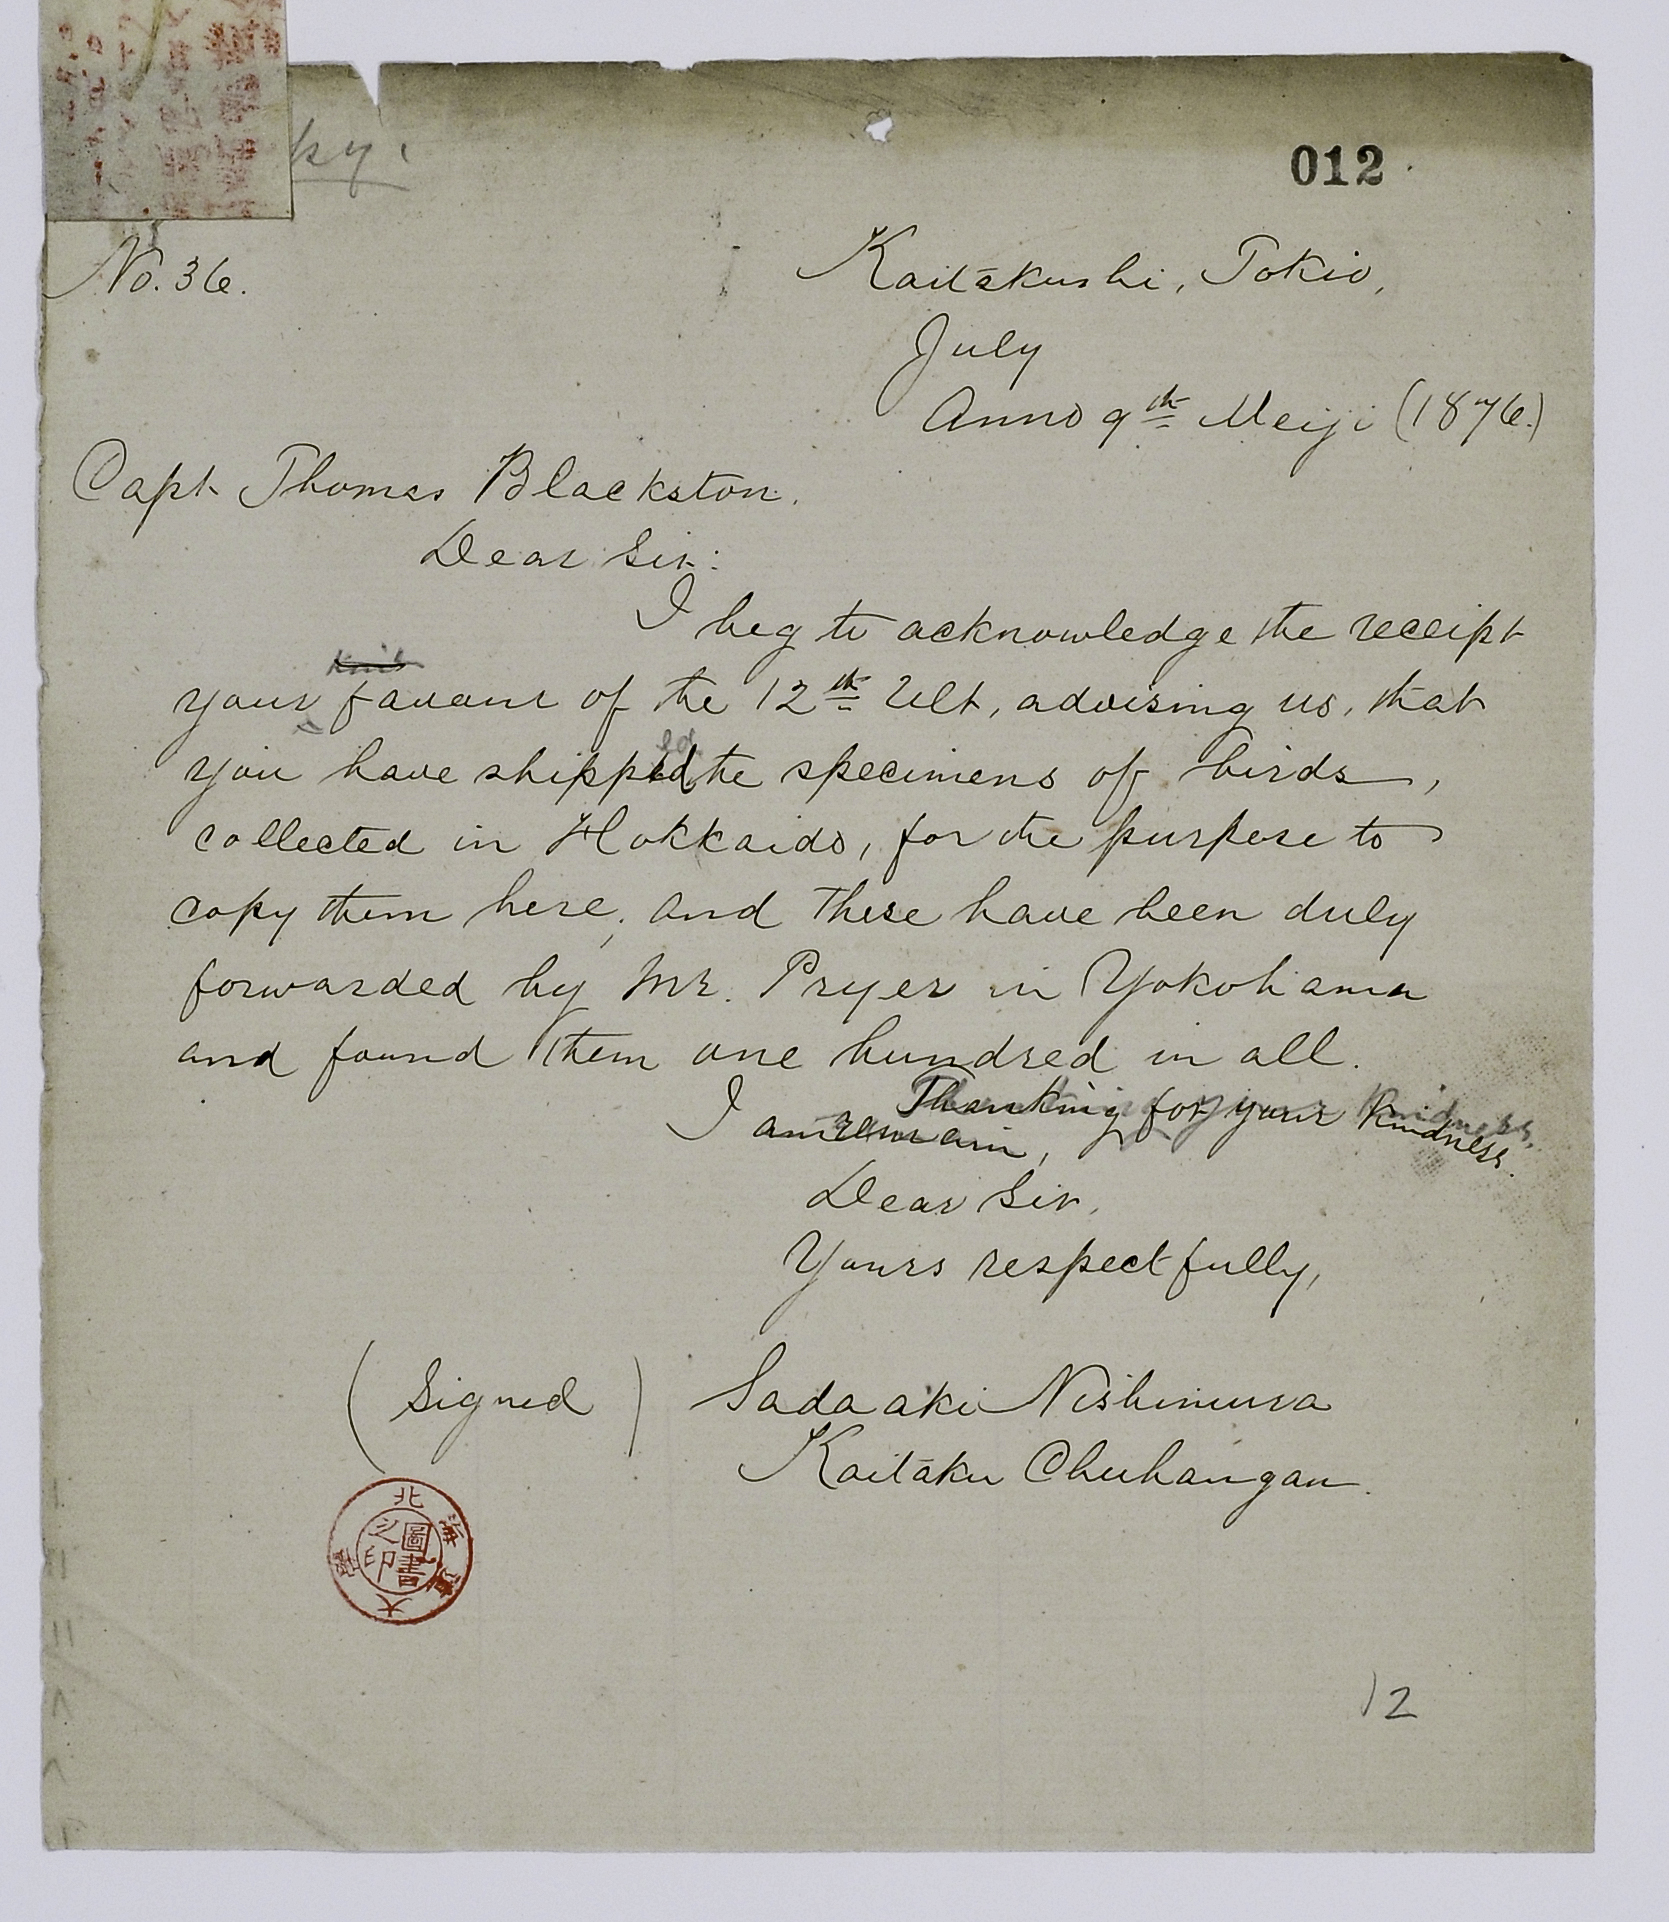 012
No. 36.
Kaitakushi, Tokio,
July
Anno 9th Meiji (1876.)
Capt Thomas Blackston.
Dear Sir:
I beg to acknowledge the receipt
your favour of the 12th Ult, advising us, that
you have shipped the specimens of birds,
collected in Hokkaido, for the purpose to
copy them here, and these have been duly
forwarded by Mr. Pryer in Yokohama
and found them one hundred in all.
Thanking for your kindness.
I am remain,
Dear Sir,
Yours respectfully,
(Signed) Sadaaki Nishimura
Kaitaku Chuhangan.
北海道大學
圖書之印
12